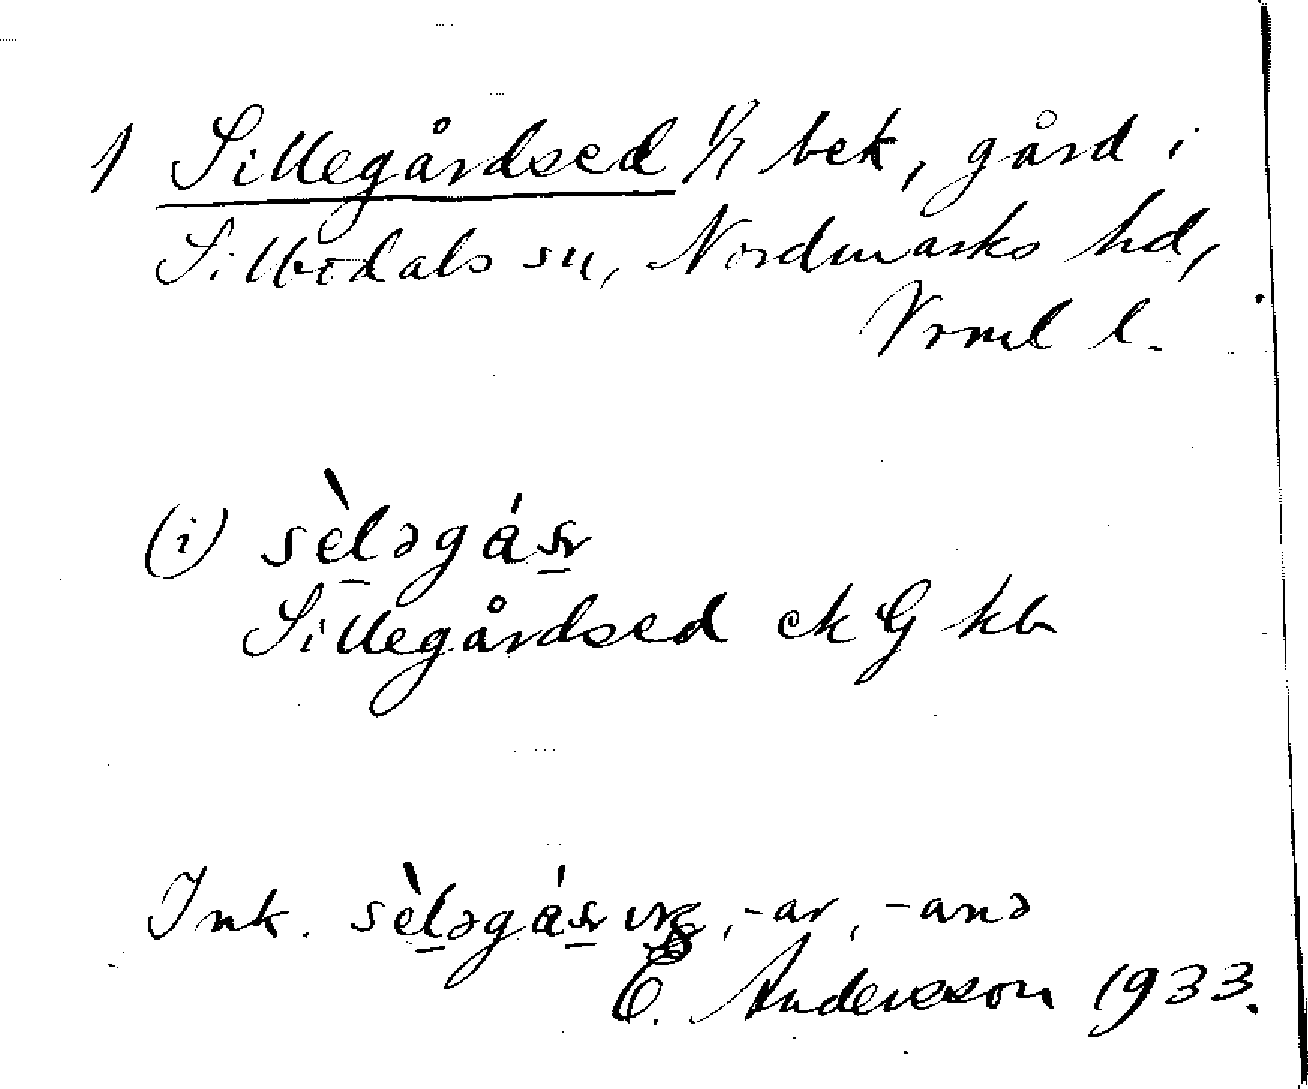 1 Sillegårdsed 1/1 bek, gård i
Silbodals sn, Nordmarks hd,
Vrml l.
(i) sèləgás̲r
Sillegårdsed ek G kb
Ink. , -ar, -anə
E. Andersson 1933.